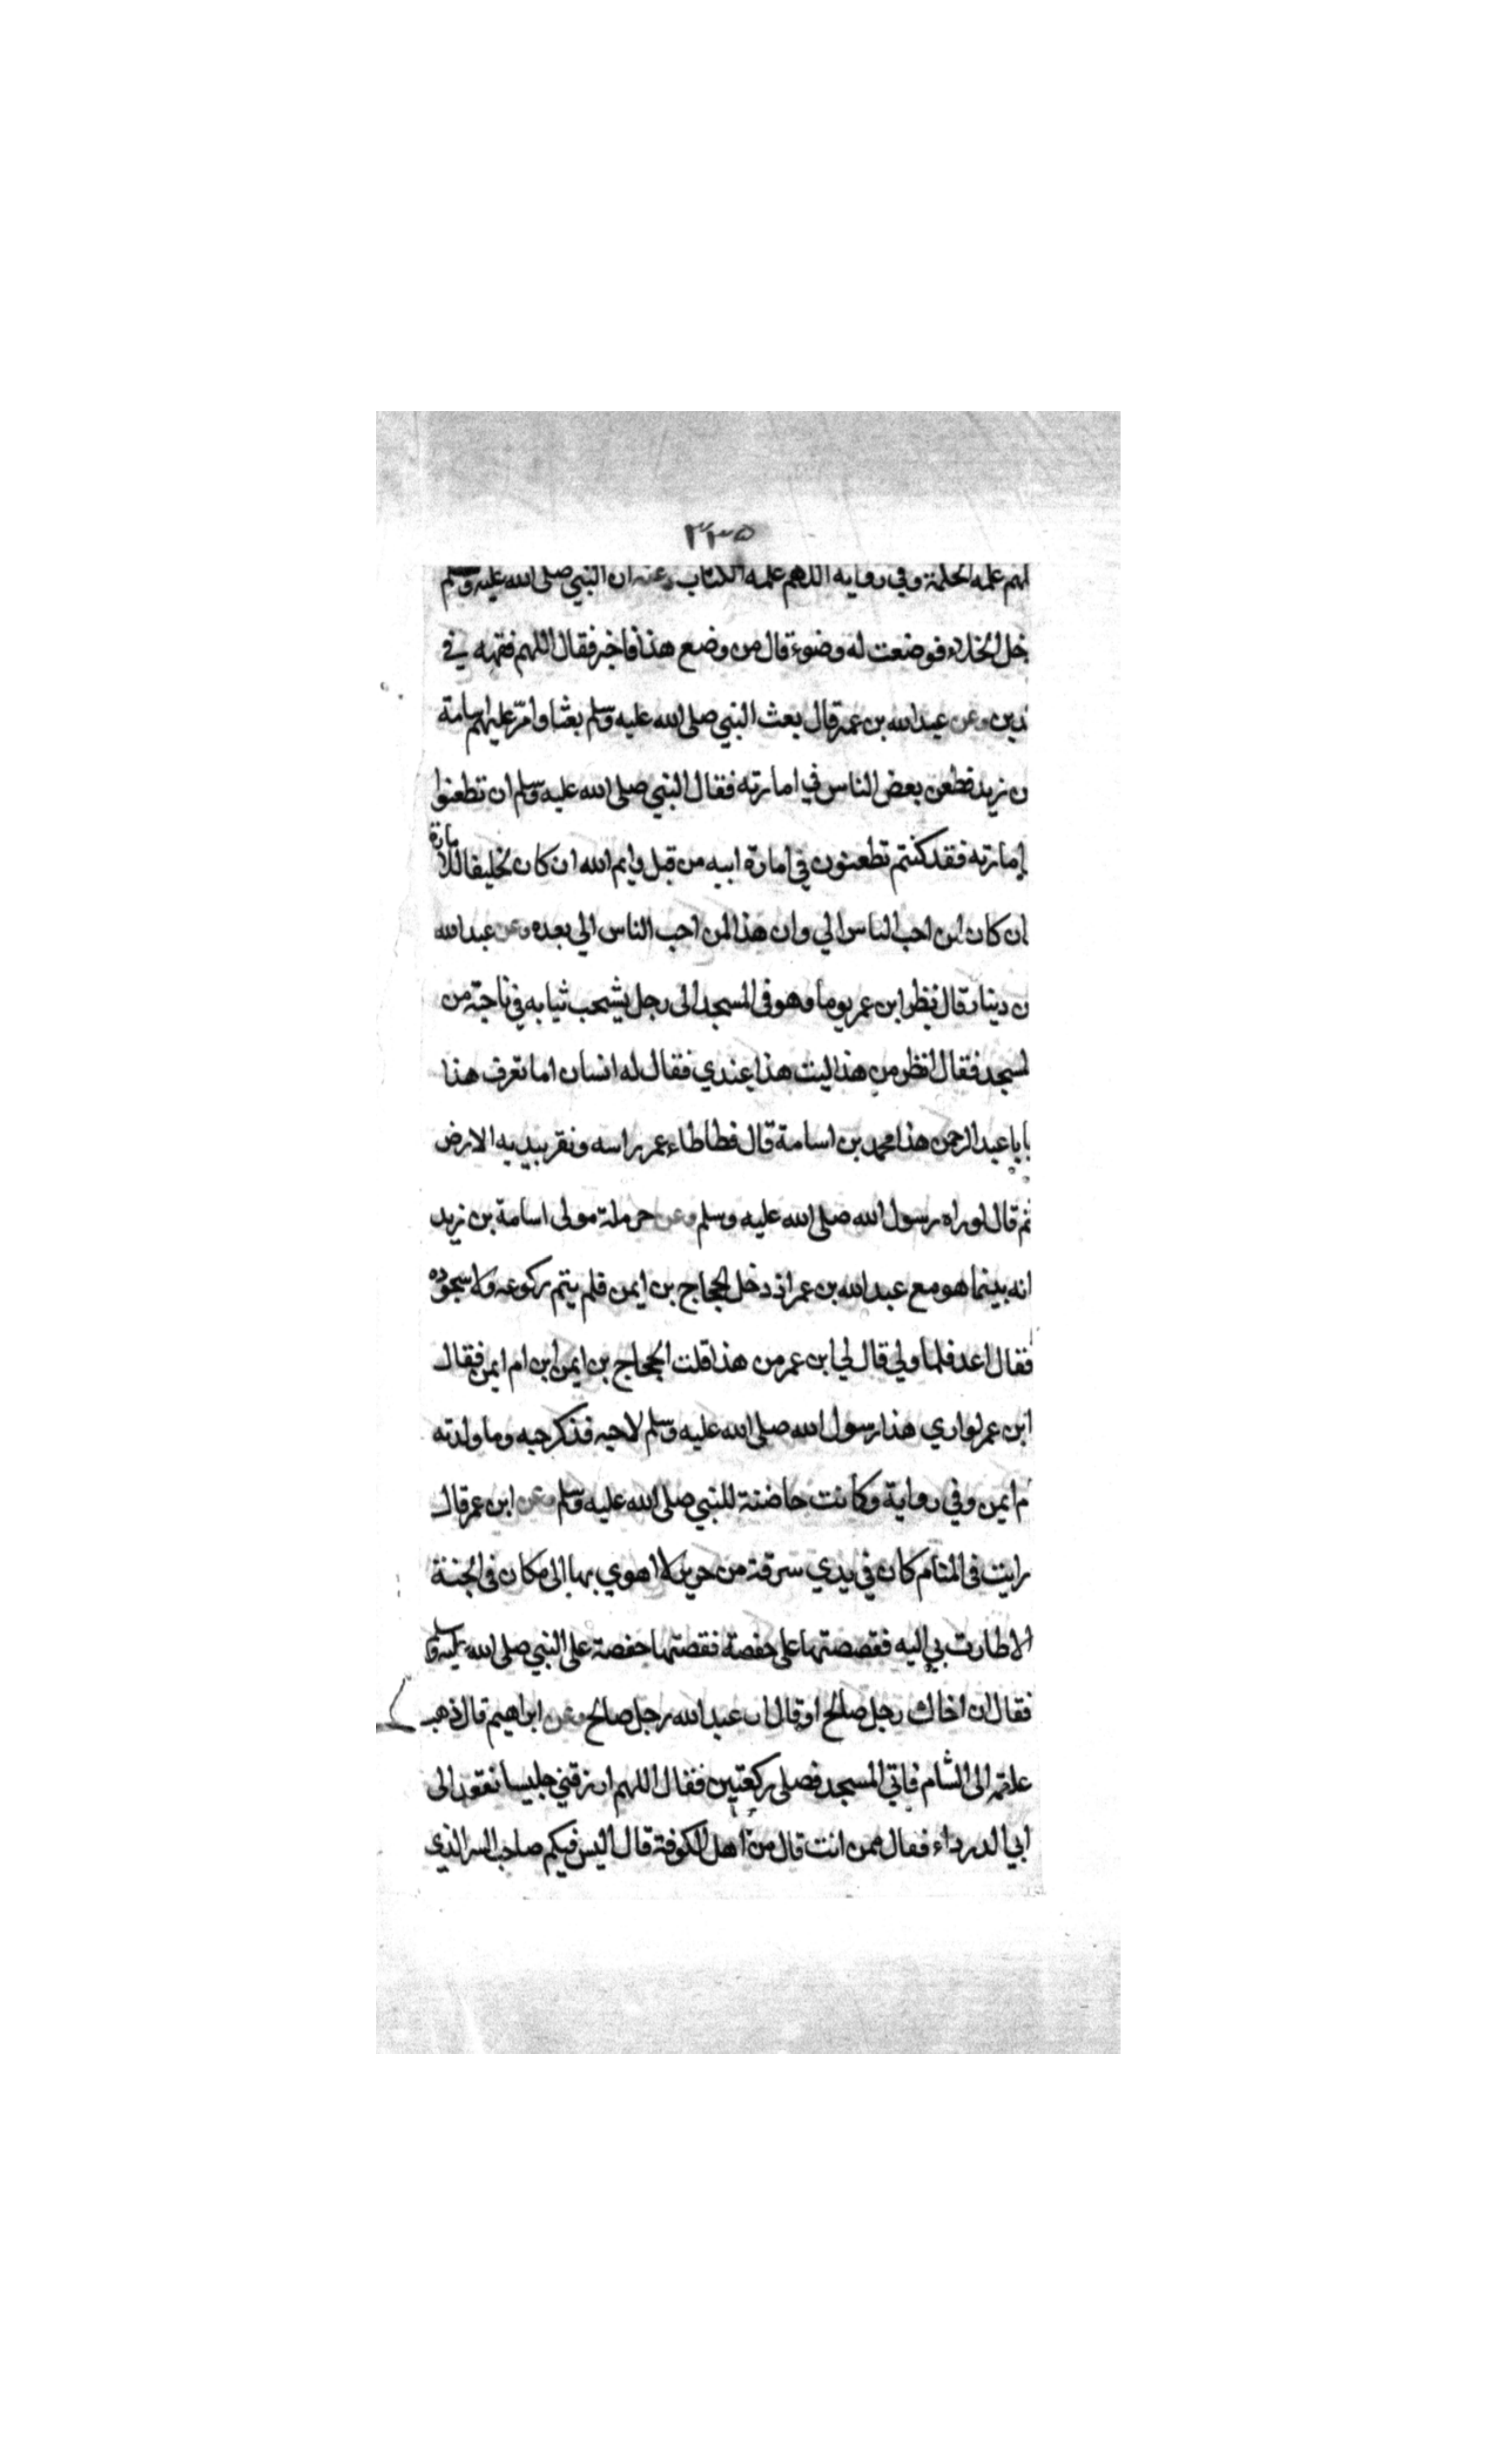 ٢٣٥
لهم علمه الحكمة وفي رواية اللهم علمه الكتاب وعنه ان النبي صلى الله عليه وسلم
خل الخلاء فوضعت له وضوء قال من وضع هذا فاخبر فقال اللهم فقهه في
لدين وعن عبد الله بن عمر قال بعث النبي صلى الله عليه وسلم بعثا وامر عليهم اسامة
بن زيد فطعن بعض الناس في امارته فقال النبي صلى الله عليه وسلم ان تطعنوا
امارته فقد كنتم تطعنون في امارة ابيه من قبل وايم الله ان كان لخليقا للامارة
ان كان لمن احب الناس الي وان هذا لمن احب الناس الي بعده وعن عبد الله
بن دينار قال نظر ابن عمر يوما وهو في المسجد الى رجل يسحب ثيابه في ناحية من
لمسجد فقال انظر من هذا ليت هذا عندي فقال له انسان اما تعرف هذا
يابا عبد الرحمن هذا محمد بن اسامة قال فطاطاء عمر راسه ونقر بيديه الارض
ثم قال لو راه رسول الله صلى الله عليه وسلم وعن حرملة مولى اسامة بن زيد
انه بينما هو مع عبد الله بن عمر اذ دخل الحجاج بن ايمن فلم يتم ركوعه ولا سجوده
فقال اعد فلما ولي قال لي ابن عمر من هذا قلت الحجاج بن ايمن ابن ام ايمن فقال
ابن عمر لو اري هذا رسول الله صلى الله عليه وسلم لاحبه فذكر حبه وما ولدته
ام ايمن وفي رواية وكانت حاضنة للنبي صلى الله عليه وسلم وعن ابن عمر قال
رايت في المنام كان في يدي سرقة من حرير لا اهوي بها الى مكان في الجنة
الا طارت بي اليه فقصصتها على حفصة فقصتها حفصة على النبي صلى الله عليه وسلم
فقال ان اخاك رجل صالح او قال ان عبد الله رجل صالح وعن ابراهيم قال ذهب
علقمة الى الشام فاتي المسجد فصلى ركعتين فقال اللهم ارزقني جليسا فقعد الى
ابي الدرداء فقال ممن انت قال من اهل الكوفة قال اليس فيكم صاحب السر الذي